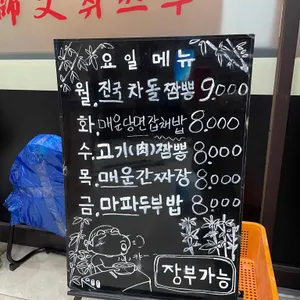 요일 메뉴
월. 진국 차돌짬뽕 9.000
화. 매운당면잡채밥 8.000
수. 고기(肉)짬뽕 8.000
목. 매운간짜장 8.000
금. 마파두부밥 8.000
장부가능